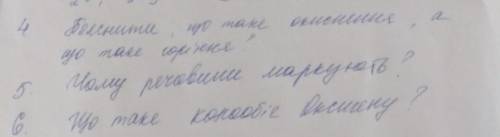 4. Пояснити, що таке окиснення, а
що таке горіння?
5. Чому речовини маркують?
6. Що таке колообіг Оксигену?